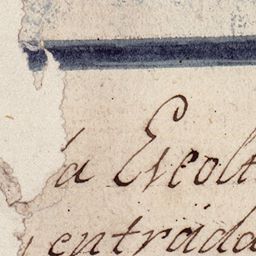 á Escolt
entrada